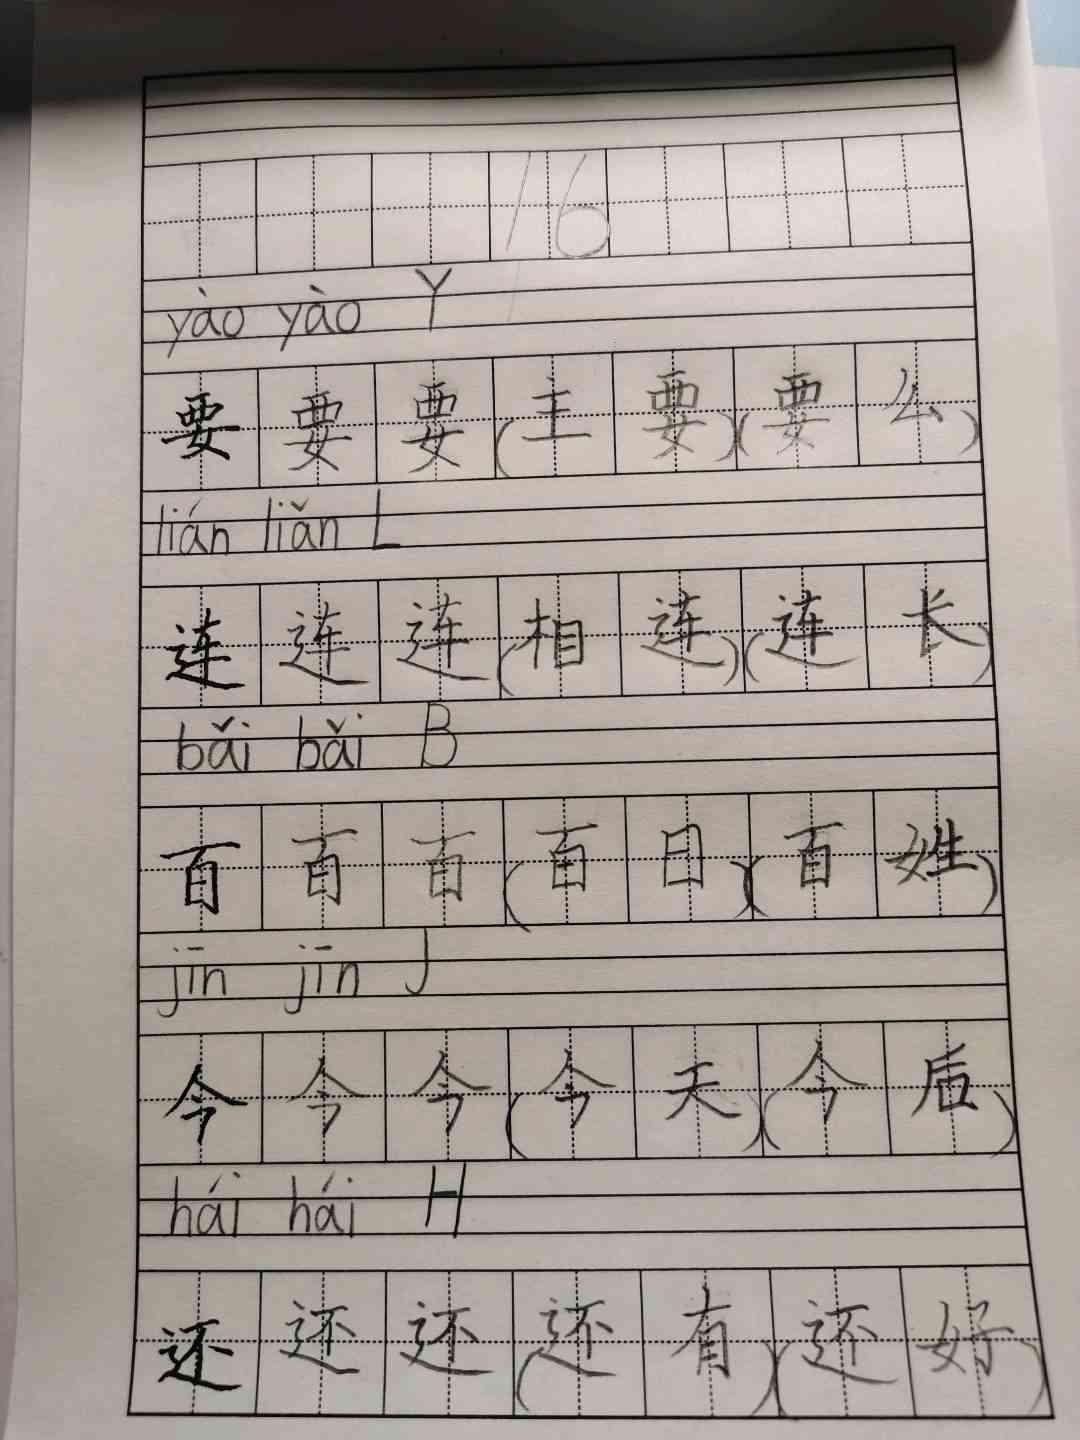 16
yào yào Y
要要要(主要)(要么)
lián liǎn L
连连连(相连)(连长)
bǎi bǎi B
百百百(百日)(百姓)
jīn jīn J
今今今(今天)(今后)
hái hái H
还还还(还有)(还好)